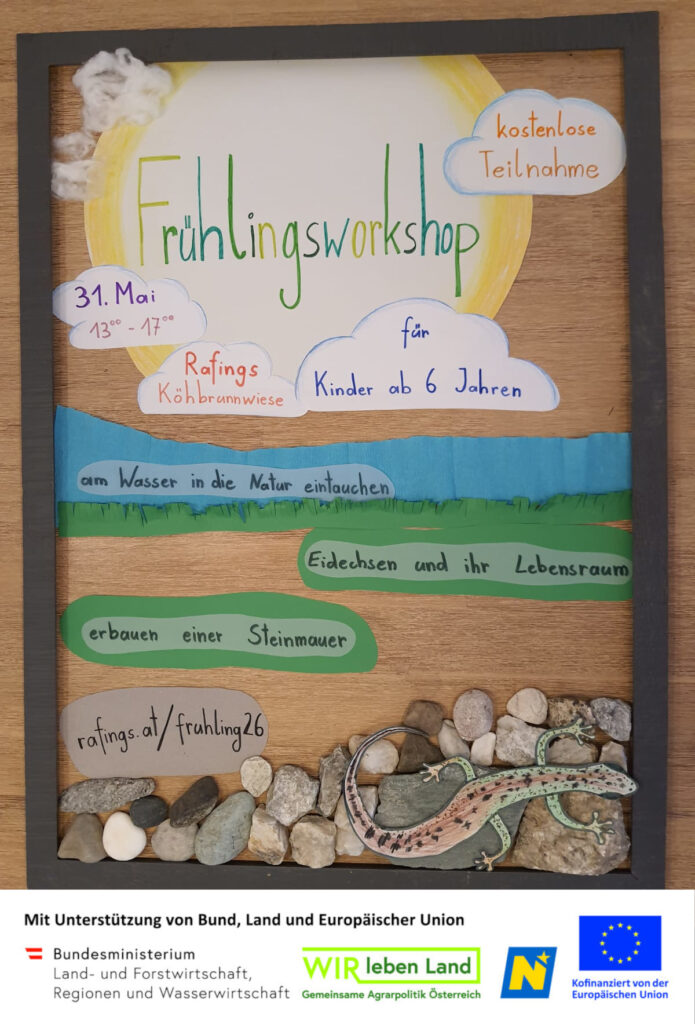 kostenlose
Teilnahme
Frühlingsworkshop
31. Mai
13⁰⁰ - 17⁰⁰
für
Kinder ab 6 Jahren
Rafings
Köhbrunnwiese
am Wasser in die Natur eintauchen
Eidechsen und ihr Lebensraum
erbauen einer Steinmauer
rafings.at/fruhling26
Mit Unterstützung von Bund, Land und Europäischer Union
Bundesministerium
Land- und Forstwirtschaft,
Regionen und Wasserwirtschaft
WIR leben Land
Gemeinsame Agrarpolitik Österreich
N
Kofinanziert von der
Europäischen Union